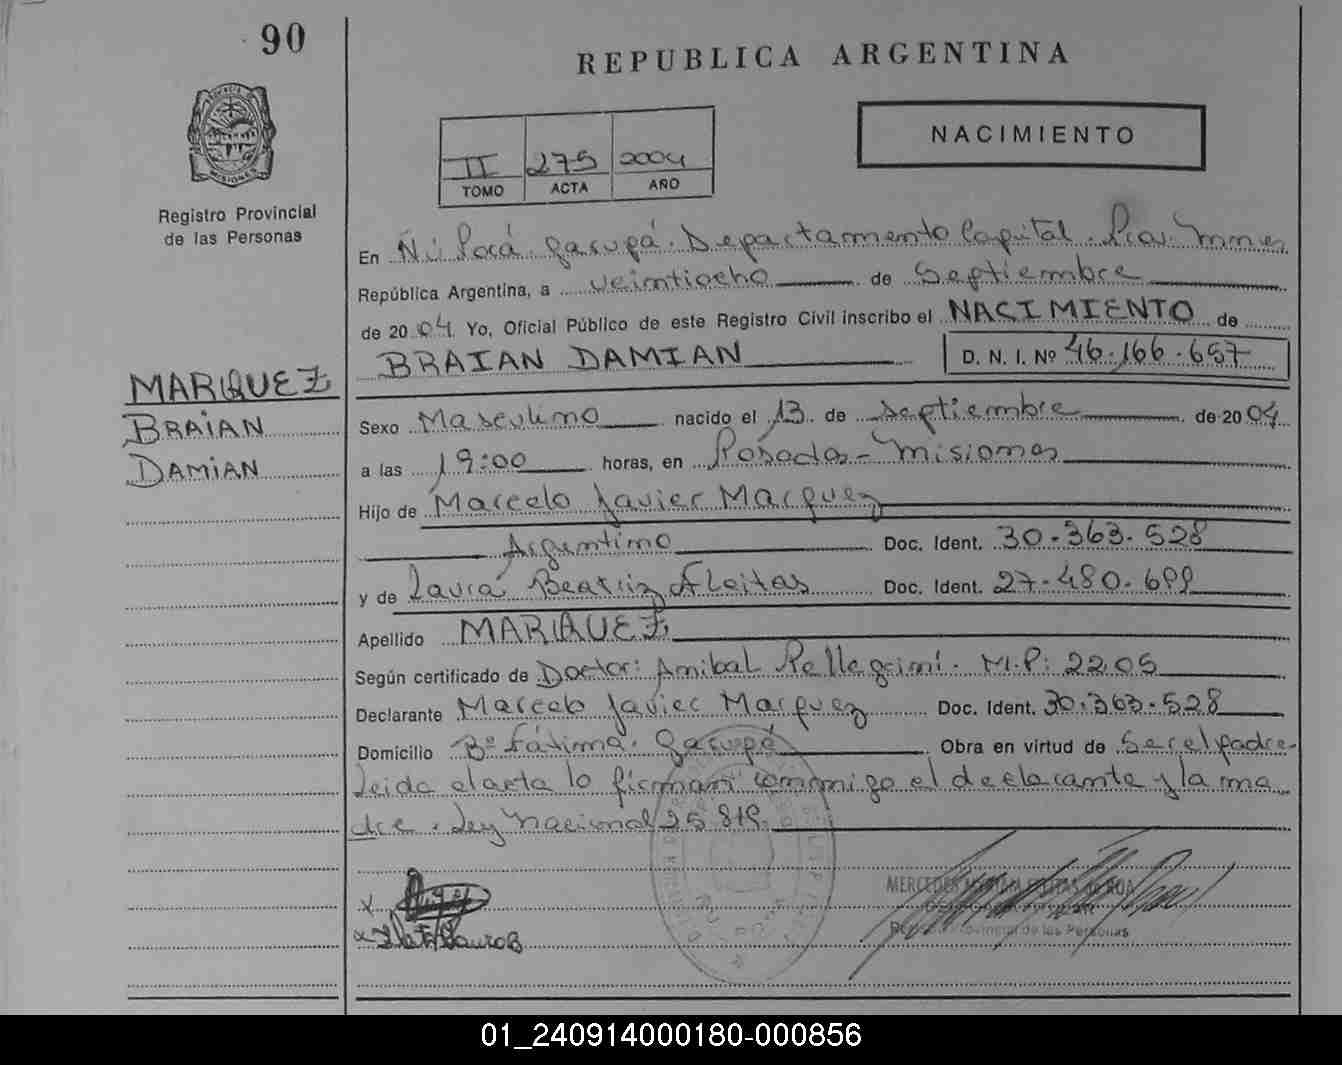 90
REPUBLICA ARGENTINA
NACIMIENTO
II 275 2004
TOMO ACTA AÑO
PROVINCIA DE MISIONES
Registro Provincial
de las Personas
En Ñú Porá. Garupá. Departamento Capital. Pcia. Mnes
República Argentina, a veintiocho de Septiembre
de 2004 Yo, Oficial Público de este Registro Civil inscribo el NACIMIENTO de
BRAIAN DAMIAN D. N. I. Nº 46.166.657
MARQUEZ
BRAIAN
DAMIAN
Sexo Masculino nacido el 13 de septiembre de 2004
a las 19:00 horas, en Posadas - Misiones
Hijo de Marcelo Javier Marquez
Argentino Doc. Ident. 30.363.528
y de Laura Beatriz Fleitas Doc. Ident. 27.480.699
Apellido MARQUEZ
Según certificado de Doctor: Anibal Pellegrini. M.P: 2205
Declarante Marcelo Javier Marquez Doc. Ident. 30.363.528
Domicilio Bº Fátima. Garupá Obra en virtud de Ser el padre-
Leida el acta lo firman conmigo el declarante y la ma
dre. Ley Nacional 25.819.
x
x Fleitas Laura B
MERCEDES MIRIAM FLEITAS de ROA
Registro Provincial de las Personas
01_240914000180-000856